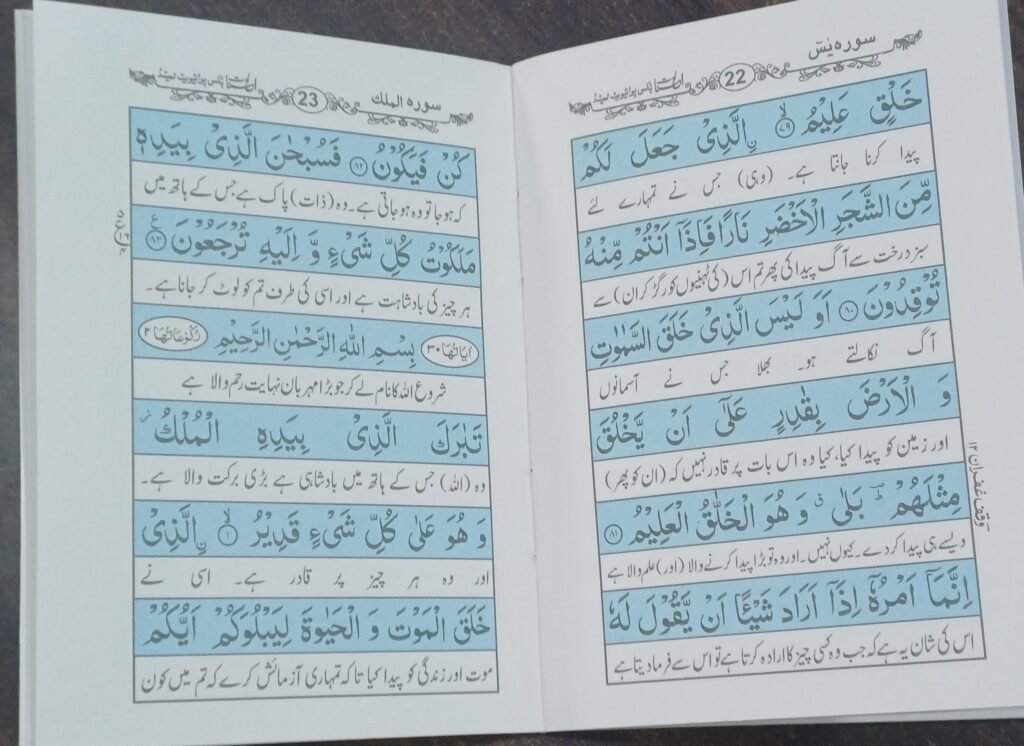 سورہ یٰسٓ
22
خَلْقٍ عَلِیْمُۨ ﴿۷۹﴾ ۙ الَّذِیْ جَعَلَ لَكُمْ
پیدا کرنا جانتا ہے۔ (وہی) جس نے تمہارے لئے
مِّنَ الشَّجَرِ الْاَخْضَرِ نَارًا فَاِذَاۤ اَنْتُمْ مِّنْهُ
سبز درخت سے آگ پیدا کی پھر تم اس (کی ٹہنیوں کو رگڑ کر ان) سے
تُوْقِدُوْنَ ﴿۸۰﴾ اَوَ لَیْسَ الَّذِیْ خَلَقَ السَّمٰوٰتِ
آگ نکالتے ہو۔ بھلا جس نے آسمانوں
وَ الْاَرْضَ بِقٰدِرٍ عَلٰۤی اَنْ یَّخْلُقَ
اور زمین کو پیدا کیا، کیا وہ اس بات پر قادر نہیں کہ (ان کو پھر)
مِثْلَهُمْ ؕ بَلٰی ۗ وَ هُوَ الْخَلّٰقُ الْعَلِیْمُ ﴿۸۱﴾
وقف غفران ۱۲
ویسے ہی پیدا کر دے۔ کیوں نہیں۔ اور وہ تو بڑا پیدا کرنے والا (اور) علم والا ہے
اِنَّمَاۤ اَمْرُهٗۤ اِذَاۤ اَرَادَ شَیْـًٔا اَنْ یَّقُوْلَ لَهٗ
اس کی شان یہ ہے کہ جب وہ کسی چیز کا ارادہ کرتا ہے تو اس سے فرما دیتا ہے
سورہ الملک
23
كُنْ فَیَكُوْنُ ﴿۸۲﴾ فَسُبْحٰنَ الَّذِیْ بِیَدِهٖ
کہ ہو جا تو وہ ہو جاتی ہے۔ وہ (ذات) پاک ہے جس کے ہاتھ میں
مَلَكُوْتُ كُلِّ شَیْءٍ وَّ اِلَیْهِ تُرْجَعُوْنَ ﴿۸۳﴾
ہر چیز کی بادشاہت ہے اور اسی کی طرف تم کو لوٹ کر جانا ہے۔
اٰیاتھا ۳۰ بِسْمِ اللّٰهِ الرَّحْمٰنِ الرَّحِیْمِ رکوعاتھا ۲
شروع اللہ کا نام لے کر جو بڑا مہربان نہایت رحم والا ہے
تَبٰرَكَ الَّذِیْ بِیَدِهِ الْمُلْكُ ؗ
وہ (اللہ) جس کے ہاتھ میں بادشاہی ہے بڑی برکت والا ہے۔
وَ هُوَ عَلٰی كُلِّ شَیْءٍ قَدِیْرُۨ ﴿۱﴾ ۙ الَّذِیْ
اور وہ ہر چیز پر قادر ہے۔ اسی نے
خَلَقَ الْمَوْتَ وَ الْحَیٰوةَ لِیَبْلُوَكُمْ اَیُّكُمْ
موت اور زندگی کو پیدا کیا تاکہ تمہاری آزمائش کرے کہ تم میں کون